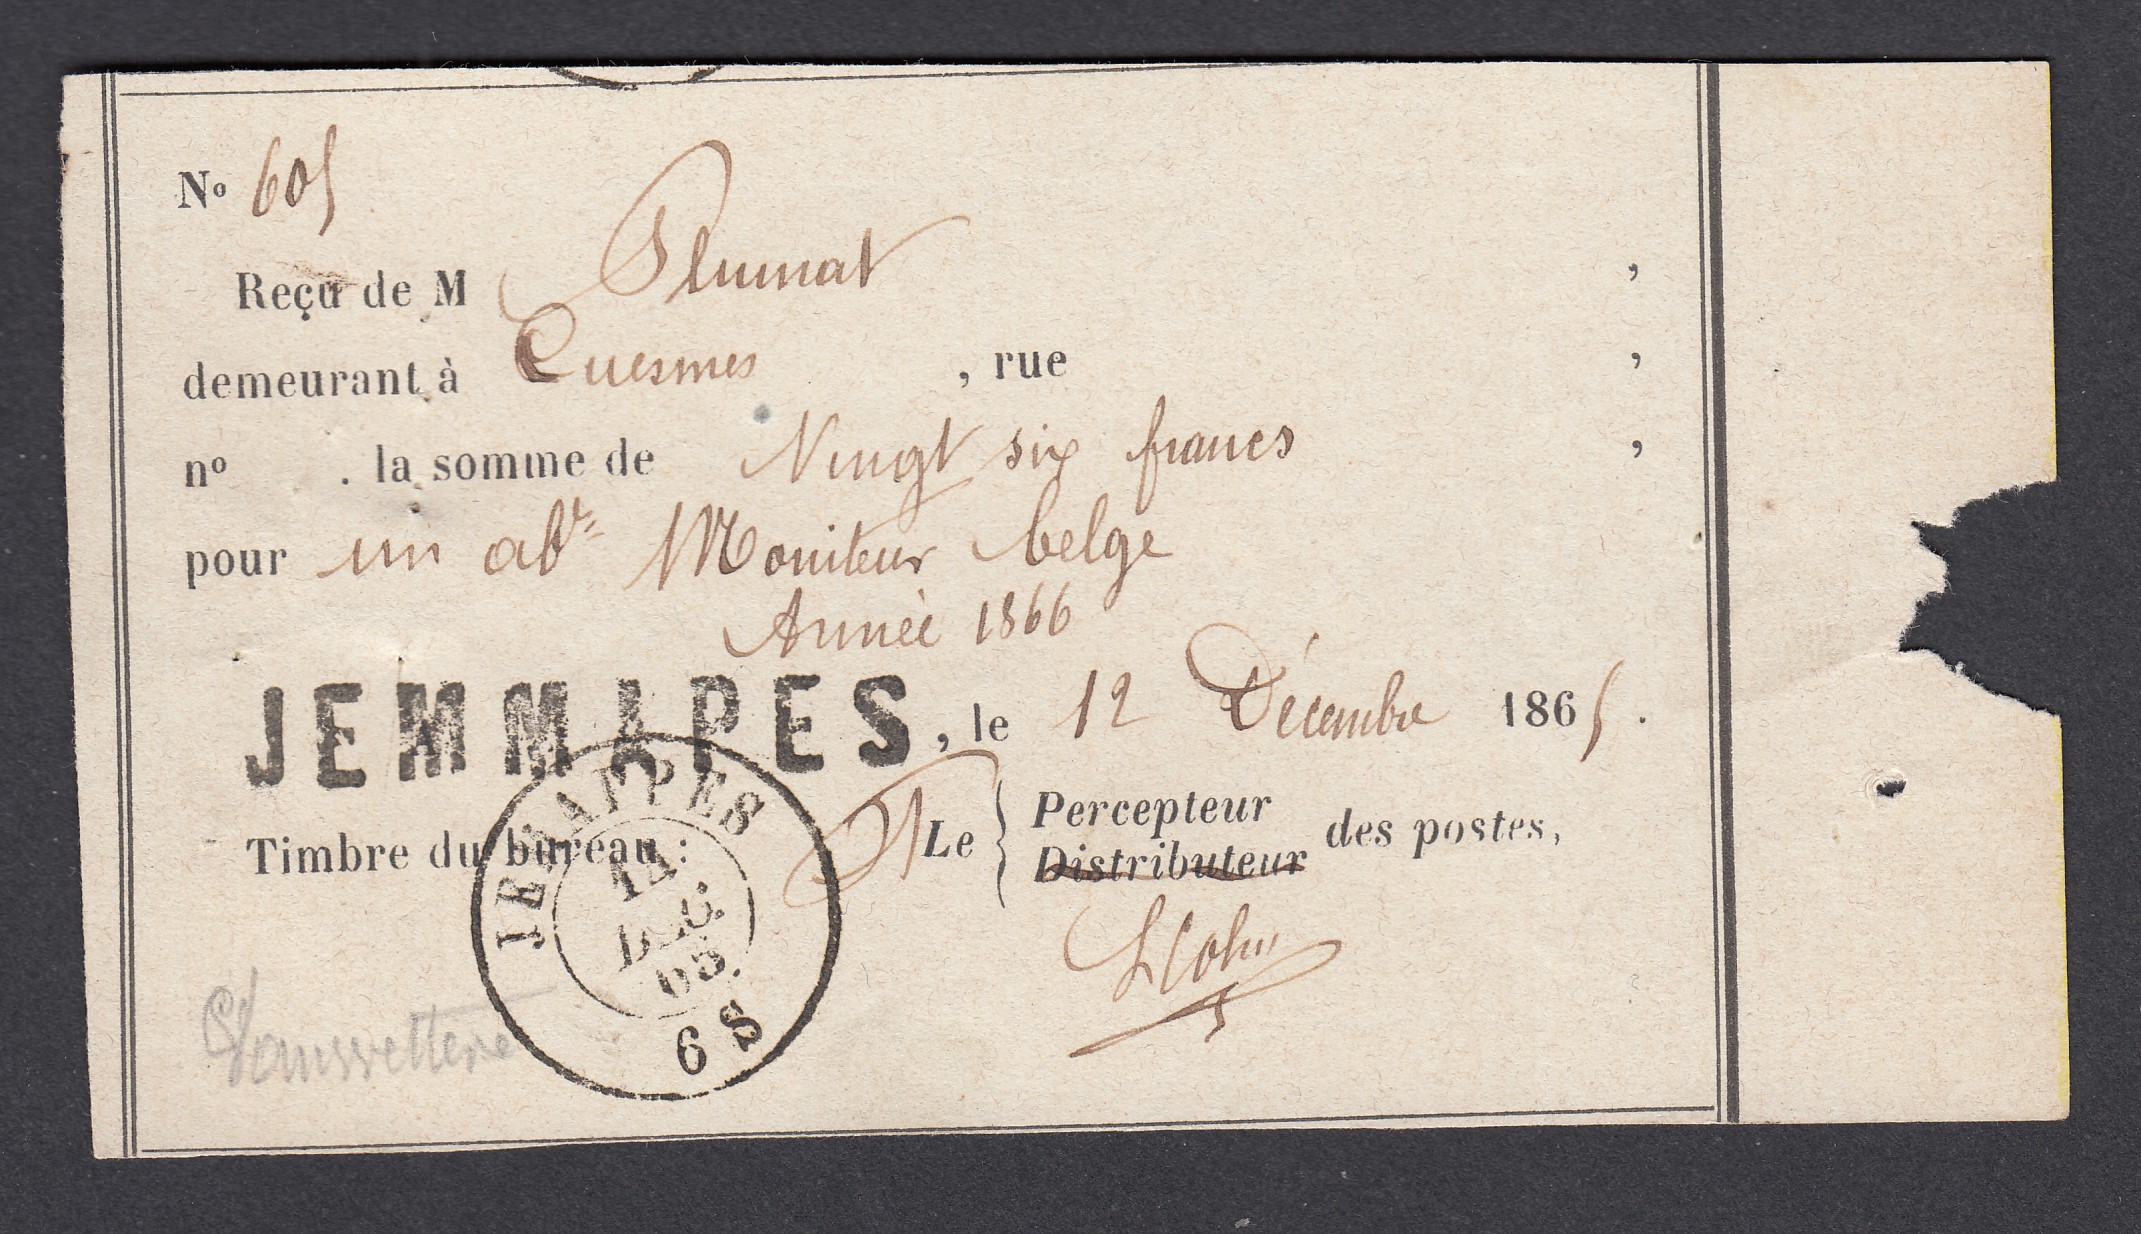 No 605
Reçu de M Plumat ,
demeurant à Cuesmes , rue ,
no . la somme de Vingt six francs ,
pour un abt Moniteur belge
Année 1866
JEMMAPES, le 12 Décembre 1865.
Timbre du bureau : Le Percepteur des postes,
Distributeur
JEMAPPES
DEC.
65.
6 S